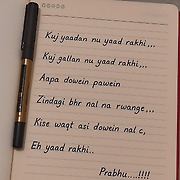 Kuj yaadan nu yaad rakhi,,,
Kuj gallan nu yaad rakhi,,,
Aapa dowein pawein
Zindagi bhr nal na rwange,,,
Kise waqt asi dowein nal c,
Eh yaad rakhi..
Prabhu....!!!!